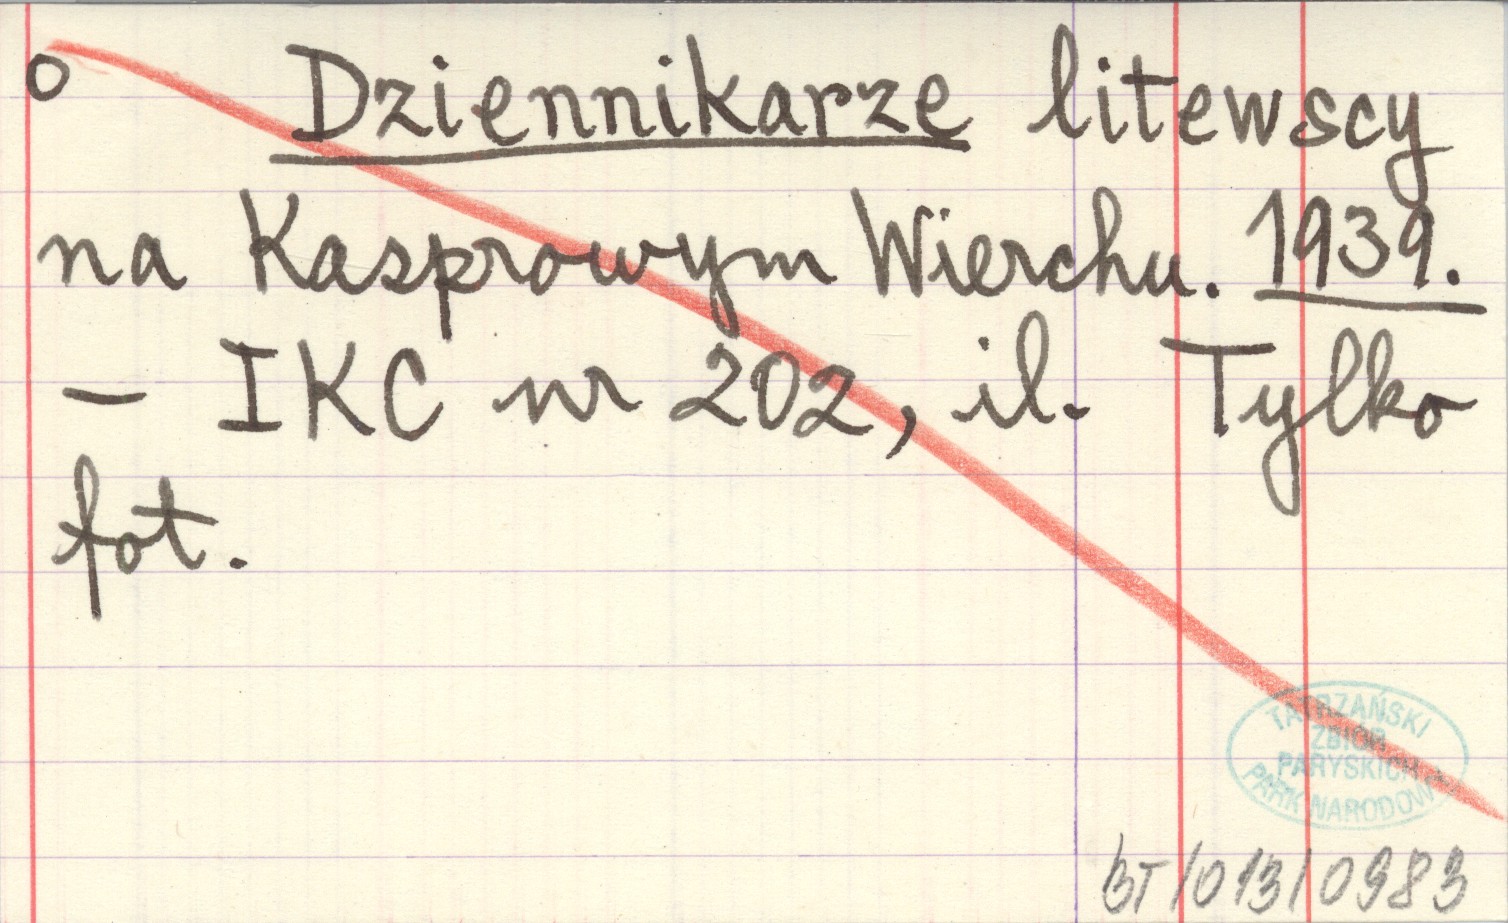 o Dziennikarze litewscy
na Kasprowym Wierchu. 1939.
– IKC nr 202, il. Tylko
fot.
TATRZAŃSKI
ZBIÓR
PARYSKICH
PARK NARODOWY
BT/013/0983